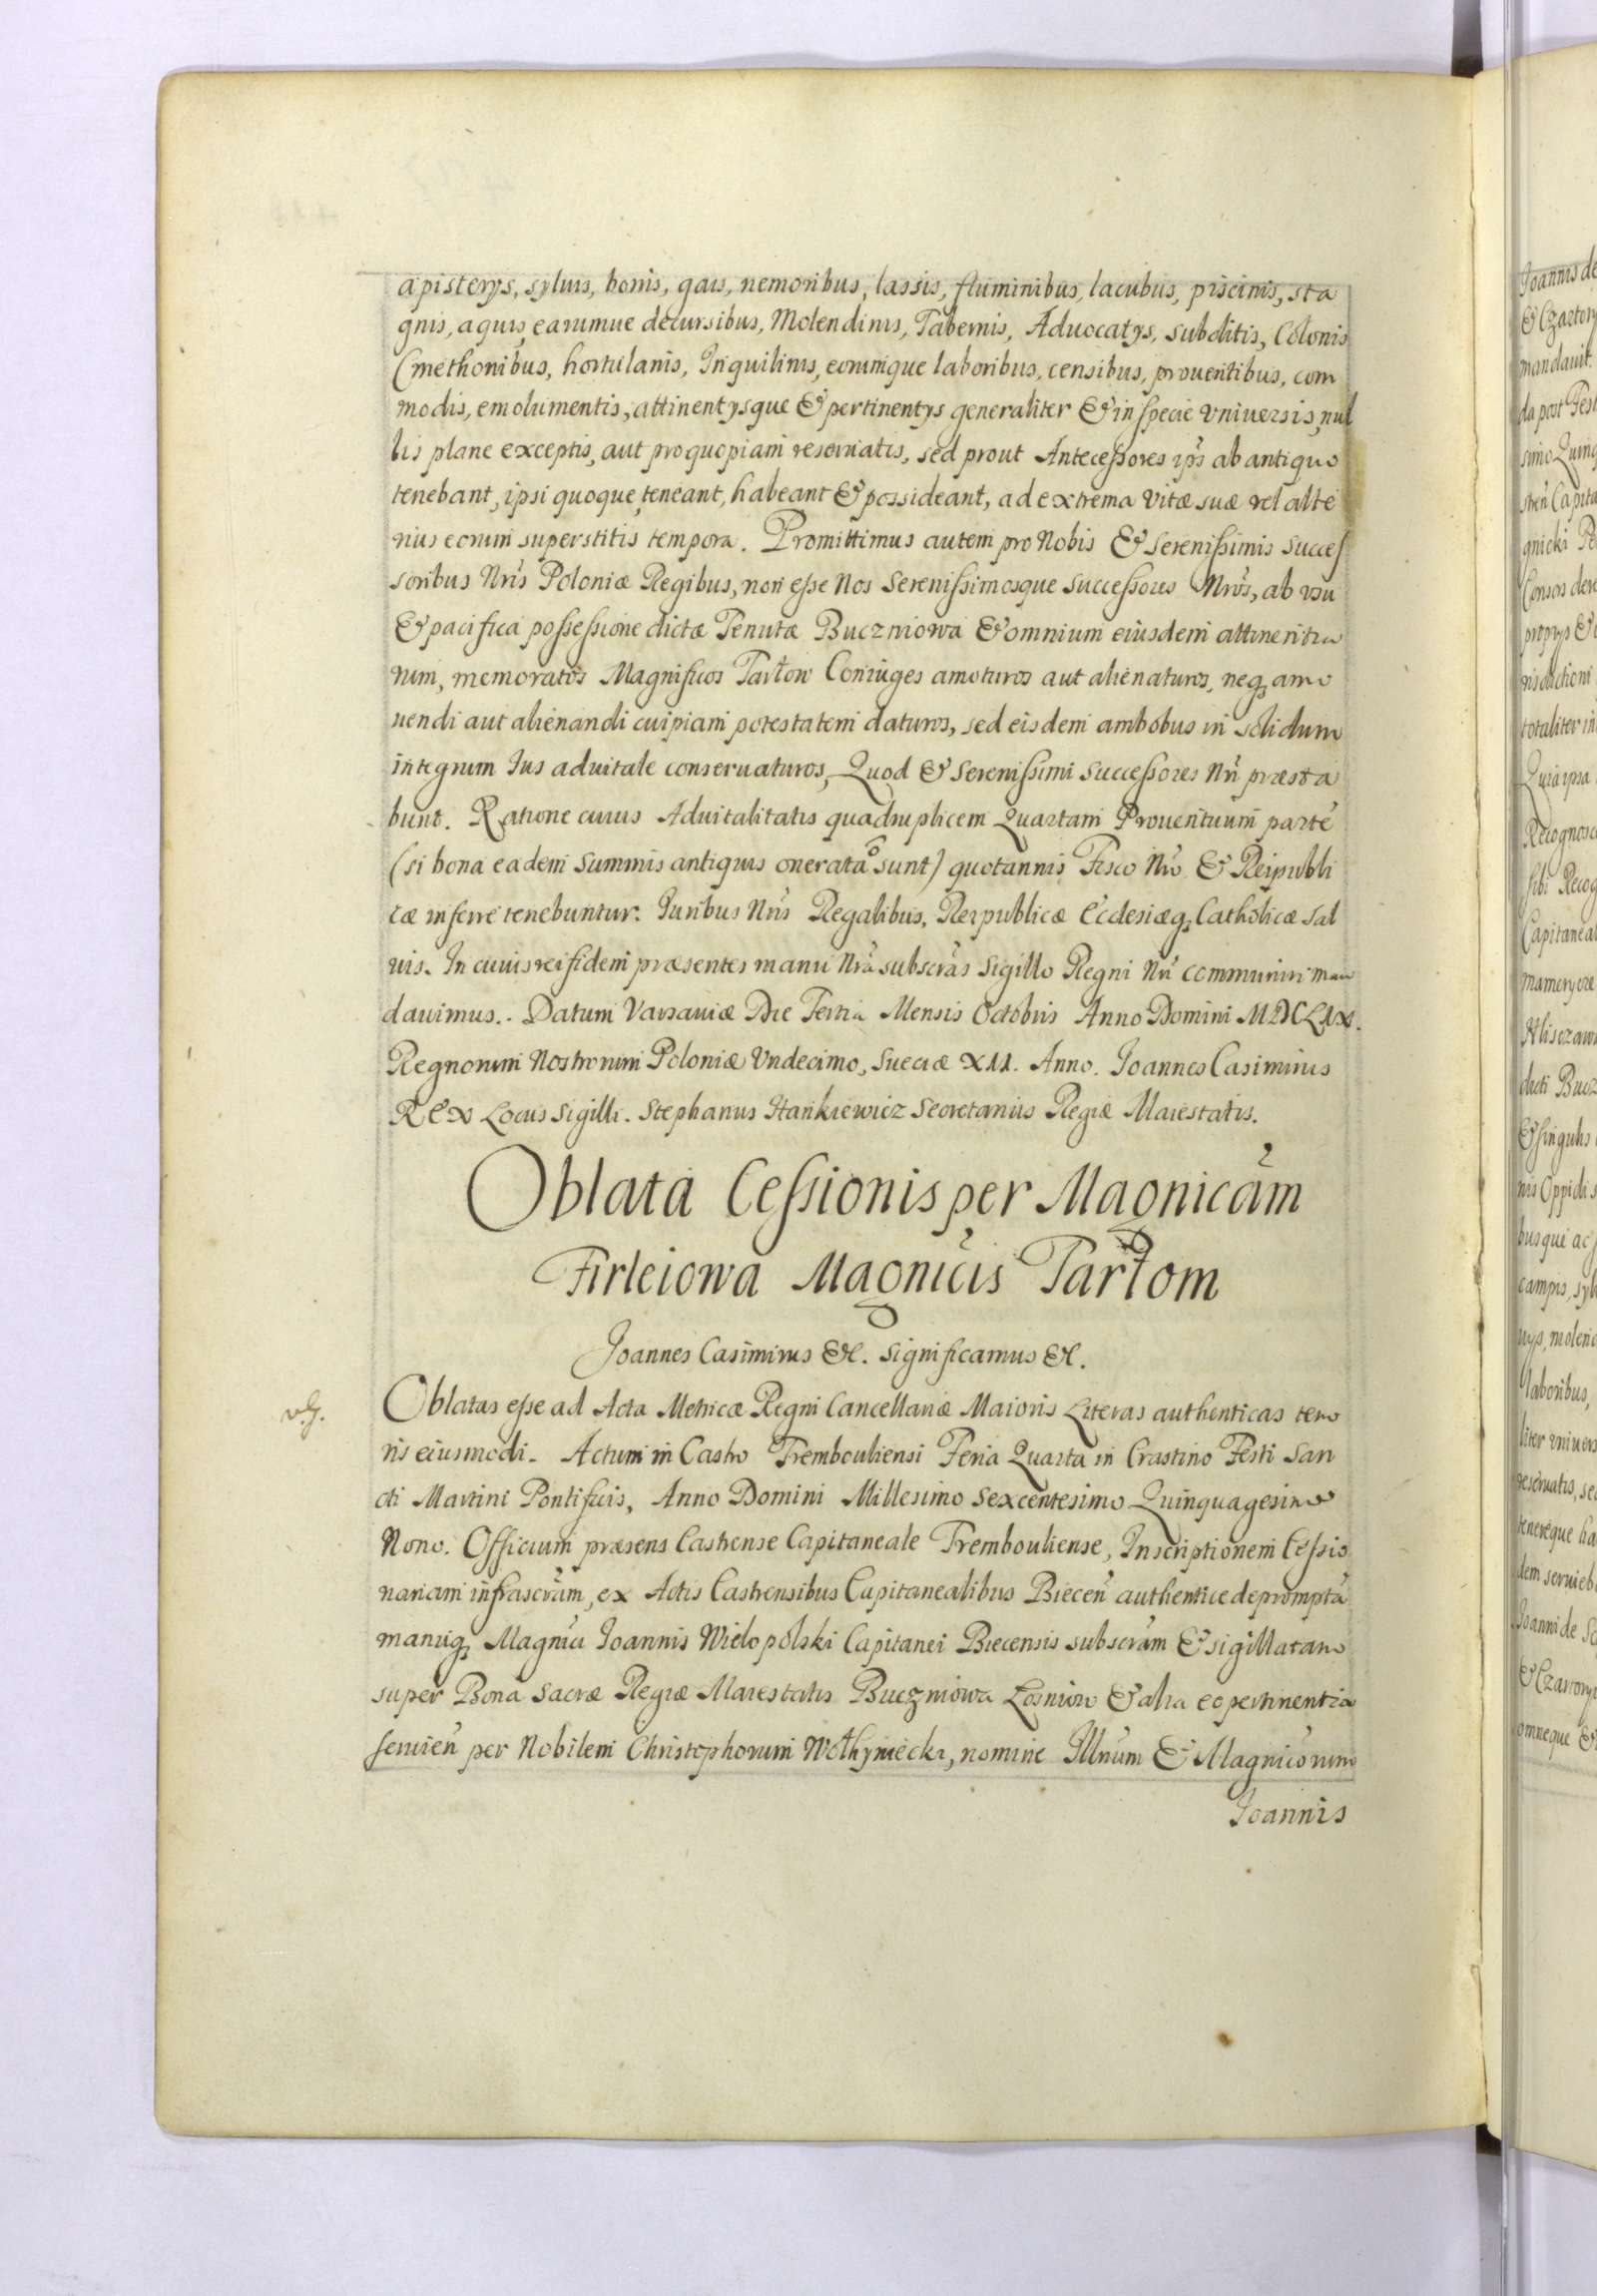 apisterys, syluis, bonis, gais, nemoribus, lassis, fluminibus, lacubus, piscinis, sta
gnis, aquis, earumue decursibus, Molendinis, Tabernis, Aduocatys, subditis, Colonis
Cmethonibus, hortulanis, Inquilinis, eorumque laboribus, censibus, prouentibus, com
modis, emolumentis, attinentysque & pertinentys generaliter & in specie vniuersis, nul
lis plane exceptis, aut pro quopiam reseruatis, sed prout Antecessores ipīs ab antiquo
tenebant, ipsi quoque teneant, habeant & possideant, ad extrema vitæ suæ vel alte
rius eorum superstitis tempora. Promittimus autem pro Nobis & Serenissimis Succes
soribus Nrīs Poloniæ Regibus, non esse Nos Serenissimosque successores Nrōs, ab vsu
& pacifica possessione dictæ Tenutæ Buczniowa & omnium eiusdem attinentia
rum, memoratos Magnificos Tarłow Coniuges amoturos aut alienaturos, neq₃ amo
uendi aut alienandi cuipiam potestatem daturos, sed eisdem ambobus in solidum
integrum Ius aduitale conseruaturos, Quod & Serenissimi Successores Nrī præsta
bunt. Ratione cuius Aduitalitatis quadruplicem Quartam Prouentuum partē
(si bona eadem summis antiquis onerata sunt) quotannis Fisco Nrō & Reipubli
cæ inferre tenebuntur. Iuribus Nrīs Regalibus, Reipublicæ Ecclesiæq₃ Catholicæ sal
uis. In cuius rei fidem præsentes manu Nrā subscrās Sigillo Regni Nrī communiri man
dauimus. Datum Varsauiæ Die Tertia Mensis Octobris Anno Domini MDCLIX.
Regnorum Nostrorum Poloniæ Vndecimo, Sueciæ XII. Anno. Joannes Casimirus
REX Locus Sigilli. Stephanus Hankiewicz Secretarius Regiæ Maiestatis.
Oblata Cessionis per Magnicām
Firleiowa Magnicis Tarłom
Joannes Casimirus &c. Significamus &c.
vG.
Oblatas esse ad Acta Metricæ Regni Cancellariæ Maioris Literas authenticas teno
ris eiusmodi. Actum in Castro Trembouliensi Feria Quarta in Crastino Festi San
cti Martini Pontificis, Anno Domini Millesimo Sexcentesimo Quinquagesimo
Nono. Officium præsens Castrense Capitaneale Trembouliense, Inscriptionem Cessio
nariam infrascrām, ex Actis Castrensibus Capitanealibus Biecen̄ authentice depromptā
manuq₃ Magnīci Joannis Wielopolski Capitanei Biecensis subscrām & sigillatam
super Bona Sacræ Regiæ Maiestatis Buczniowa Łosniow & alia eo pertinentia
seruien̄ per Nobilem Christophorum Wołhyniecki, nomine Illrūm & Magnicōrum
Joannis